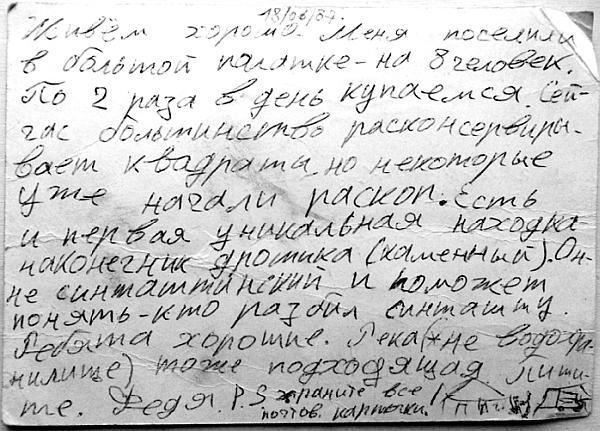 18/06/87.
Живём хорошо. Меня поселили
в большой палатке - на 8 человек.
По 2 раза в день купаемся. Сей-
час большинство расконсервиры-
вает квадраты, но некоторые
уже начали раскоп. Есть
и первая уникальная находка
наконечник дротика (каменный). Он-
не синташтинский и поможет
понять - кто разбил синташту.
Ребята хорошие. Река (не водохра-
нилище) тоже подходящая. Пиши-
те. Федя. P.S храните все
почтов. карточки!